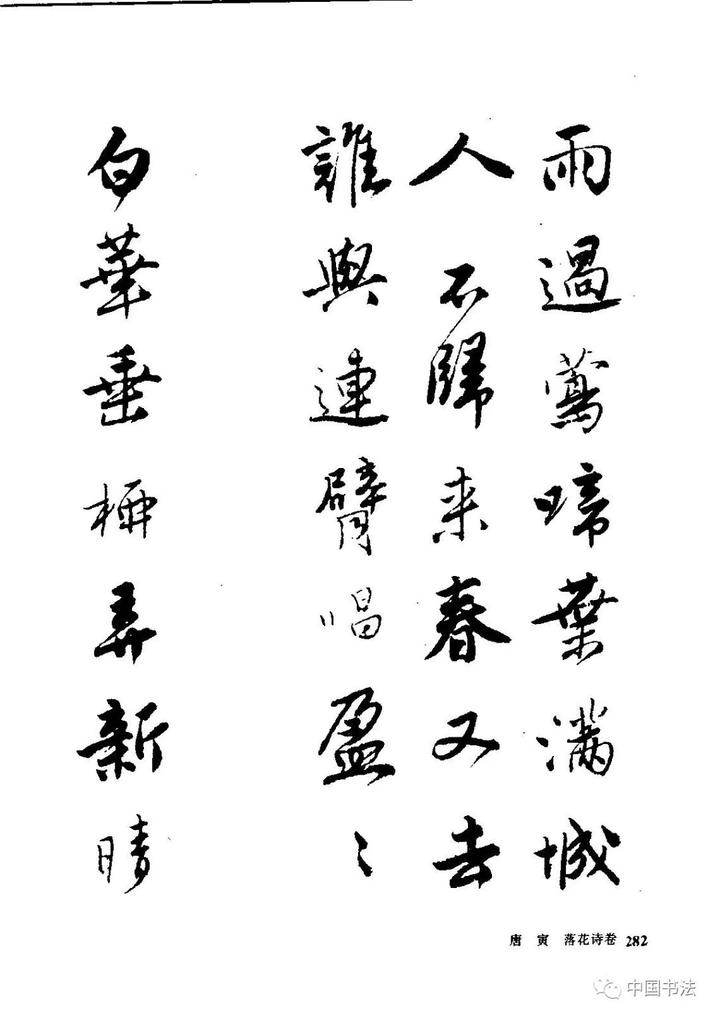 雨過鶯啼葉滿城
人不歸来春又去
誰與連臂唱盈〻
白華垂柵弄新晴
唐 寅 落花诗卷 282
中国书法